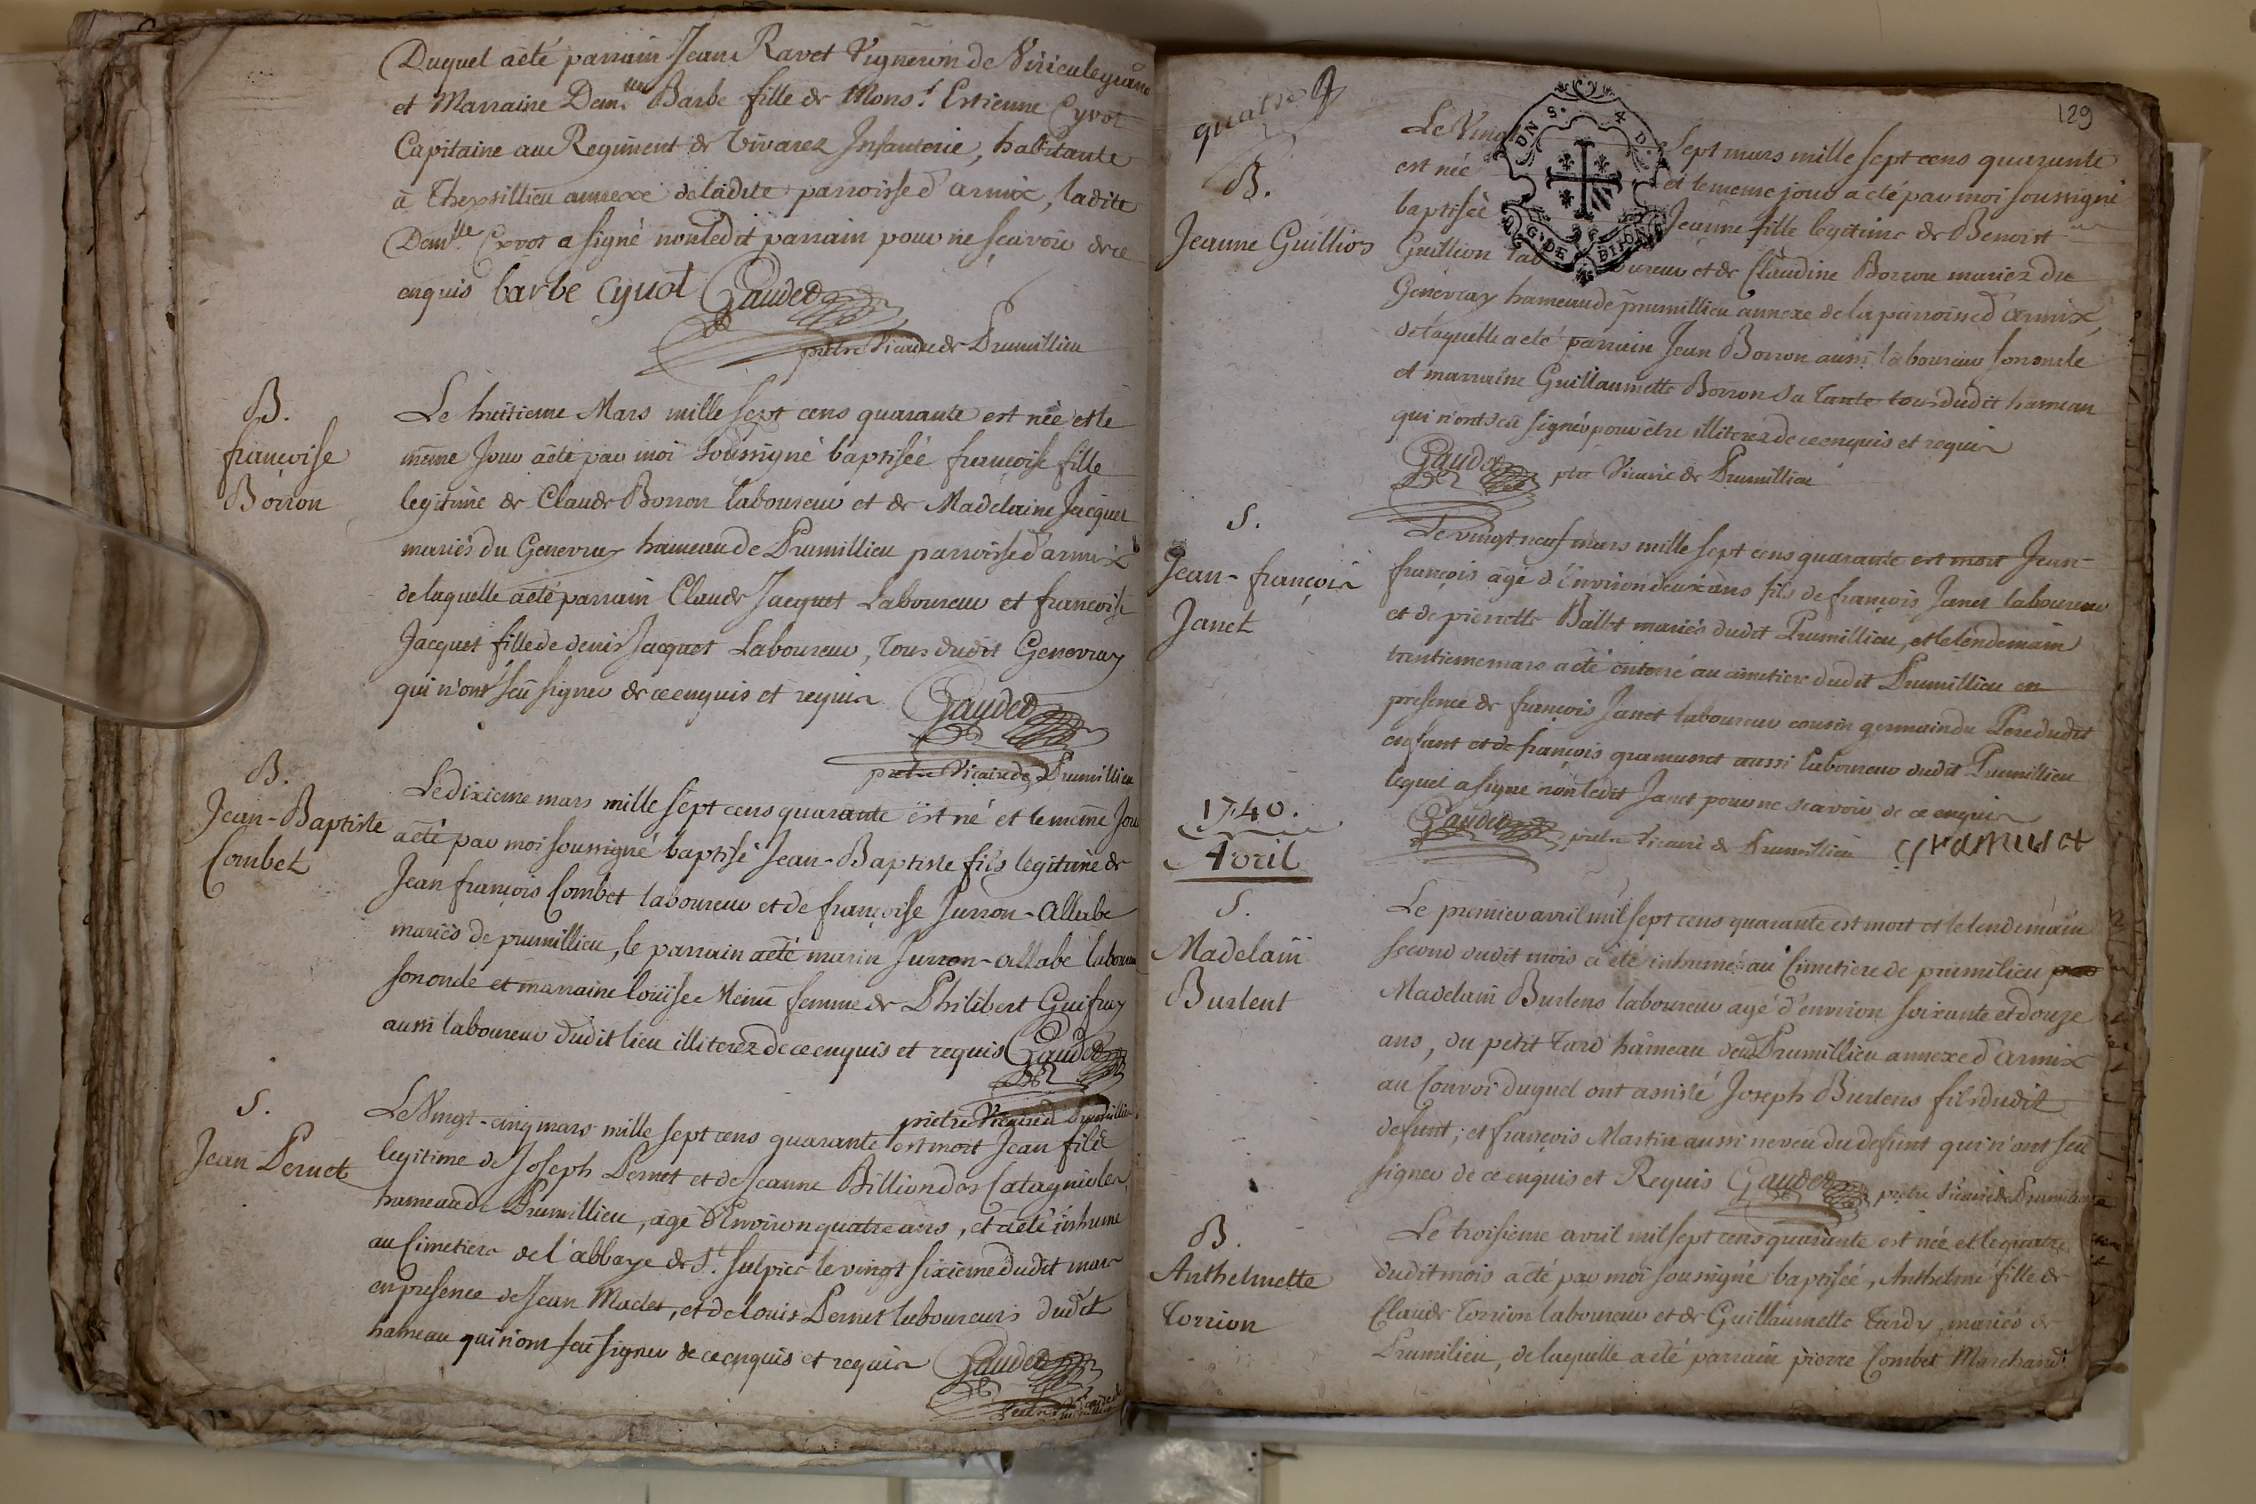 Duquel a èté parrain Jean Ravet Vigneron de Virieulegrand
et Marraine Dem.lle Barbe fille de Mons.r Estienne Cyvot
Capitaine au Regiment de Vivarez Infanterie, habitante
à Thezillieu annexe de ladite parroisse d'armix, ladite
Dem.lle Cyvot a signé non ledit parrain pour ne sçavoir de ce
enquis barbe cyuot Gaudet
prêtre Vicaire de Prumillieu
B.
francoise
Borron
Le huitieme Mars mille sept cens quarante est née et le
même Jour a èté par moi soussigné baptisée francoise fille
legitime de Claude Borron laboureur et de Madelaine Jacquet
mariés du Genevray hameau de Prumillieu parroisse d'armix
de laquelle a èté parrain Claude Jacquet Laboureur et francoise
Jacquet fille de denis Jacquet Laboureur, tous dudit Genevray
qui n'ont sçu signer de ce enquis et requis Gaudet
prêtre Vicaire de Prumillieu
B.
Jean-Baptiste
Combet
Le dixieme mars mille sept cens quarante est né et le même Jour
a èté par moi soussigné baptisé Jean-Baptiste fils legitime de
Jean françois Combet laboureur et de françoise Jurron-allabe
mariés de prumillieu, le parrain a èté marin Jurron-allabe laboureur
son oncle et marraine louise Menu femme de Philibert Guifray
aussi laboureur dudit lieu illiterez de ce enquis et requis Gaudet
prêtre Vicaire d Prumillieu
S.
Jean Pernet
Le Vingt-cinq mars mille sept cens quarante est mort Jean fils
legitime de Joseph Pernet et de Jeanne Billion des Catagnioles
hameau de Prumillieu, agé d'Environ quatre ans, et a èté inhumé
au Cimetiere de l'abbaye de S.t Sulpice le vingt sixieme dudit mars
en presence de Jean Maclet, et de louis Pernet laboureurs dudit
hameau qui n'ont sçu signer de ce enquis et requis Gaudet
Prêtre Vicaire de
Prumillieu
quatre
129
GN DE DIJON
B.
Jeanne Guillion
Le Vingt Sept mars mille sept cens quarante
est née et le meme jour a èté par moi soussigné
baptisée Jeanne fille legitime de Benoist
Guillion laboureur et de Claudine Borron mariez du
Genevray hameau de prumillieu annexe de la parroisse d'armix,
de laquelle a èté parrain Jean Borron aussi laboureur son oncle
et marraine Guillaumette Borron sa tante tous dudit hameau
qui n'ont sçu signer pour être illiterez de ce enquis et requis
Gaudet ptre Vicaire de Prumillieu
S.
Jean-françois
Janet
Le vingt neuf mars mille sept cens quarante est mort Jean-
françois agé d'Environ deux ans fils de françois Janet laboureur
et de pierrette Ballet mariés dudit Prumillieu, et le lendemain
trentieme mars a èté enterré au cimetiere dudit Prumillieu en
presence de françois Janet laboureur cousin germain du Pere dudit
enfant et de françois gramusset aussi laboureur dudit Prumillieu
lequel a signé non ledit Janet pour ne scavoir de ce enquis
Gaudet prêtre Vicaire de Prumillieu
1740.
Avril
S.
Madelain
Burlent
Le premier avril mil sept cens quarante est mort et le lendemain
second dudit mois a été inhumé au Cimetiere de prumilieu
Madelain Burlens laboureur agé d'environ soixante et douze
ans, du petit tard hameau dud Prumillieu annexe d'armix
au Convoi duquel ont assisté Joseph Burlens fils dudit
defunt; et françois Martin aussi neveu du defunt qui n'ont sçu
signer de ce enquis et Requis Gaudet prêtre Vicaire de Prumilieu
B.
Anthelmette
Torrion
Le troisieme avril mil sept cens quarante est née et le quatre
dudit mois a èté par moi soussigné baptisée, Anthelme fille de
Claude Torrion laboureur et de Guillaumette Tardy, mariés de
Prumilieu, de laquelle a èté parrain pierre Combet Marchand